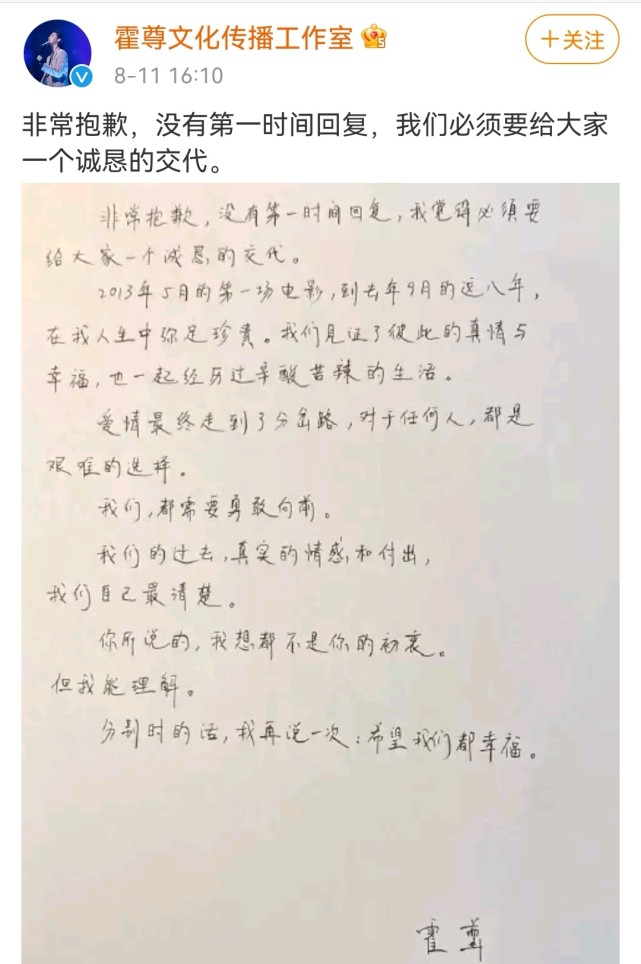 霍尊文化传播工作室
8-11 16:10
+关注
非常抱歉，没有第一时间回复，我们必须要给大家
一个诚恳的交代。
非常抱歉，没有第一时间回复，我觉得必须要
给大家一个诚恳的交代。
2013年5月的第一场电影，到去年9月的这八年，
在我人生中弥足珍贵。我们见证了彼此的真情与
幸福，也一起经历过辛酸苦辣的生活。
爱情最终走到了分岔路，对于任何人，都是
艰难的选择。
我们，都需要勇敢向前。
我们的过去，真实的情感和付出，
我们自己最清楚。
你所说的，我想都不是你的初衷。
但我能理解。
分别时的话，我再说一次：希望我们都幸福。
霍尊